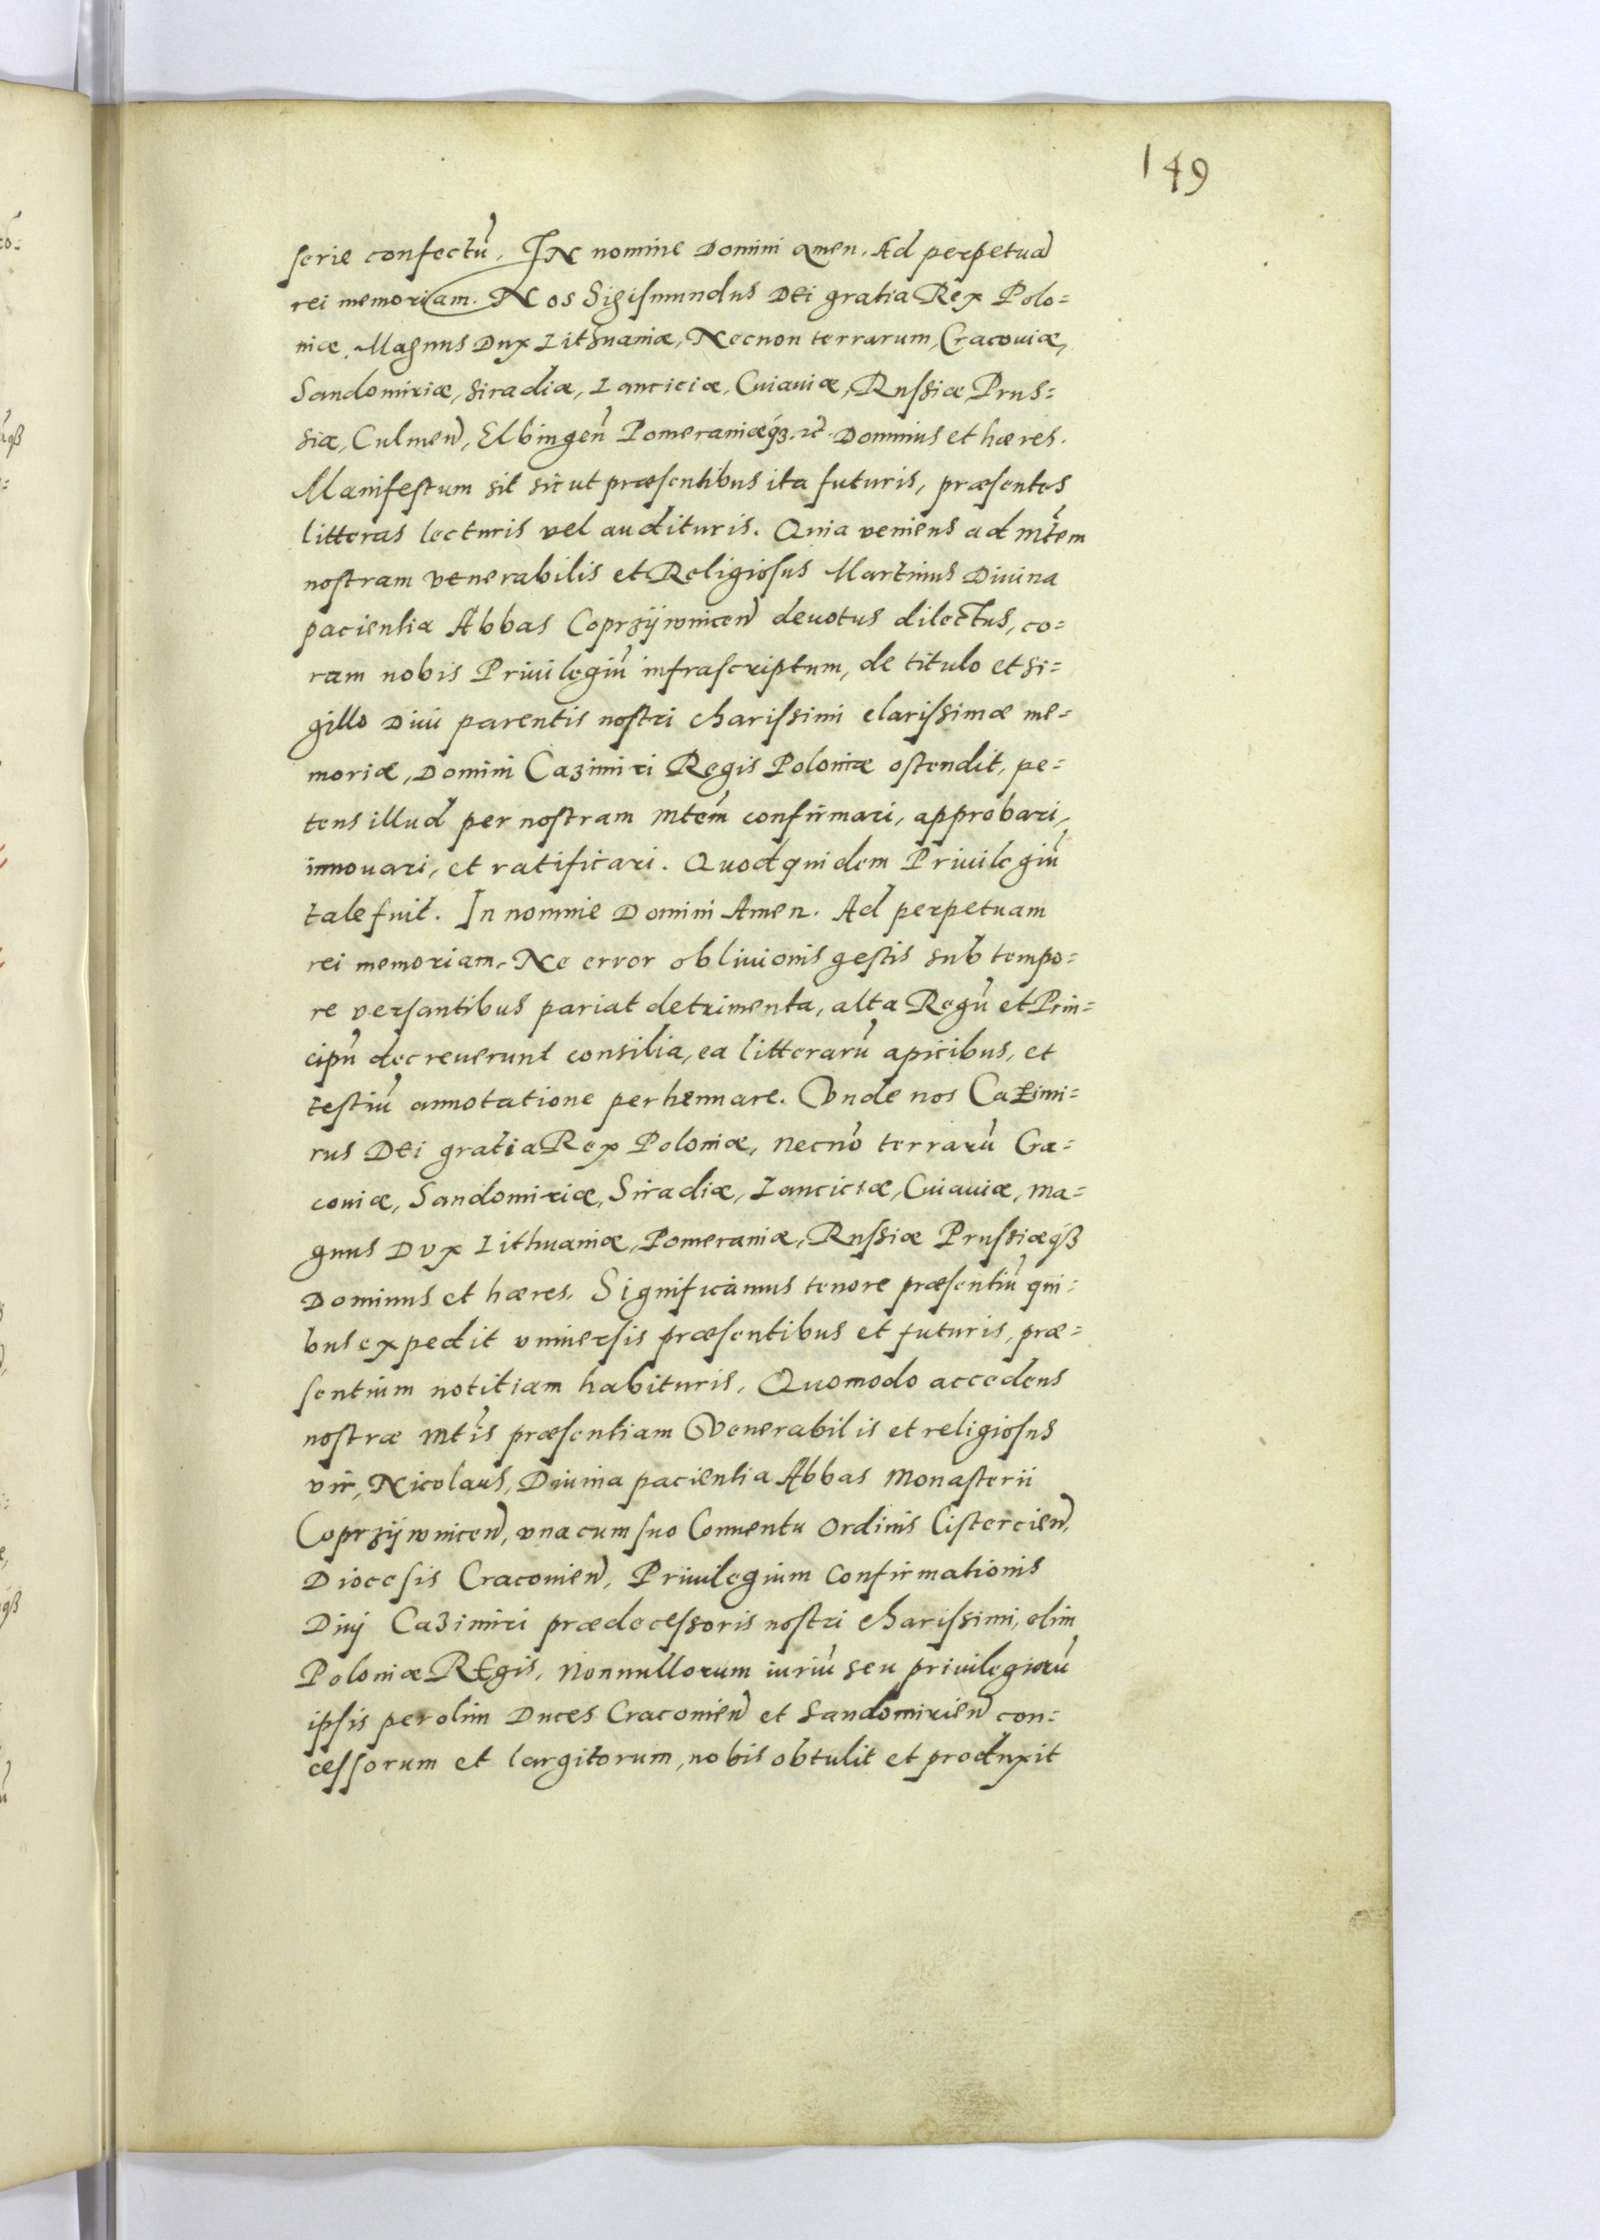 149
serie confectũ. IN nomine Domini Amen. Ad perpetuã
rei memoriam. Nos Sigismundus Dei gratia Rex Polo=
niæ. Magnus Dux Lithuaniæ, Necnon terrarum, Cracouiæ,
Sandomiriæ, Siradiæ, Lanciciæ, Cuiauiæ, Russiæ, Prus=
siæ, Culmeñ, Elbingeñ Pomeraniæq́ꝫ. ꝛc̃. Dominus et hæres.
Manifestum sit sicut præsentibus ita futuris, præsentes
litteras lecturis vel audituris. Quia veniens ad Mt̃em
nostram venerabilis et Religiosus Martinus Diuina
pacientia Abbas Coprzÿwniceñ deuotus dilectus, co=
ram nobis Priuilegiũ infrascriptum, de titulo et si=
gillo Diui parentis nostri charissimi clarissimæ me=
moriæ, Domini Cazimiri Regis Poloniæ ostendit, pe=
tens illud per nostram Mtem̃ confirmari, approbari,
innouari, et ratificari. Quod quidem Priuilegiũ
tale fuit. In nomine Domini Amen. Ad perpetuam
rei memoriam. Ne error obliuionis gestis sub tempo=
re versantibus pariat detrimenta, alta Regũ et Prin=
cipũ decreuerunt consilia, ea litterarũ apicibus, et
testiũ annotatione perhennare. Vnde nos Cazimi=
rus Dei gratia Rex Poloniæ, necnõ terrarũ Cra=
couiæ, Sandomiriæ, Siradiæ, Lanciciæ, Cuiauiæ, ma=
gnus Dvx Lithuaniæ, Pomeraniæ, Russiæ Prussiæq́ꝫ
Dominus et hæres. Significamus tenore præsentiũ qui=
bus expedit vniuersis præsentibus et futuris, præ=
sentium notitiam habituris. Quomodo accedens
nostræ Mt̃is præsentiam Venerabilis et religiosus
vir, Nicolaus, Diuina pacientia Abbas Monasterii
Coprzÿwniceñ, vna cum suo Conuentu Ordinis Cistercieñ,
Diocesis Cracouieñ, Priuilegium Confirmationis
Diuj Cazimiri prædecessoris nostri charissimi, olim
Poloniæ REgis, Nonnullorum iuriũ seu priuilegiorũ
ipsis per olim Duces Cracouieñ et Sandomirieñ con=
cessorum et largitorum, nobis obtulit et produxit